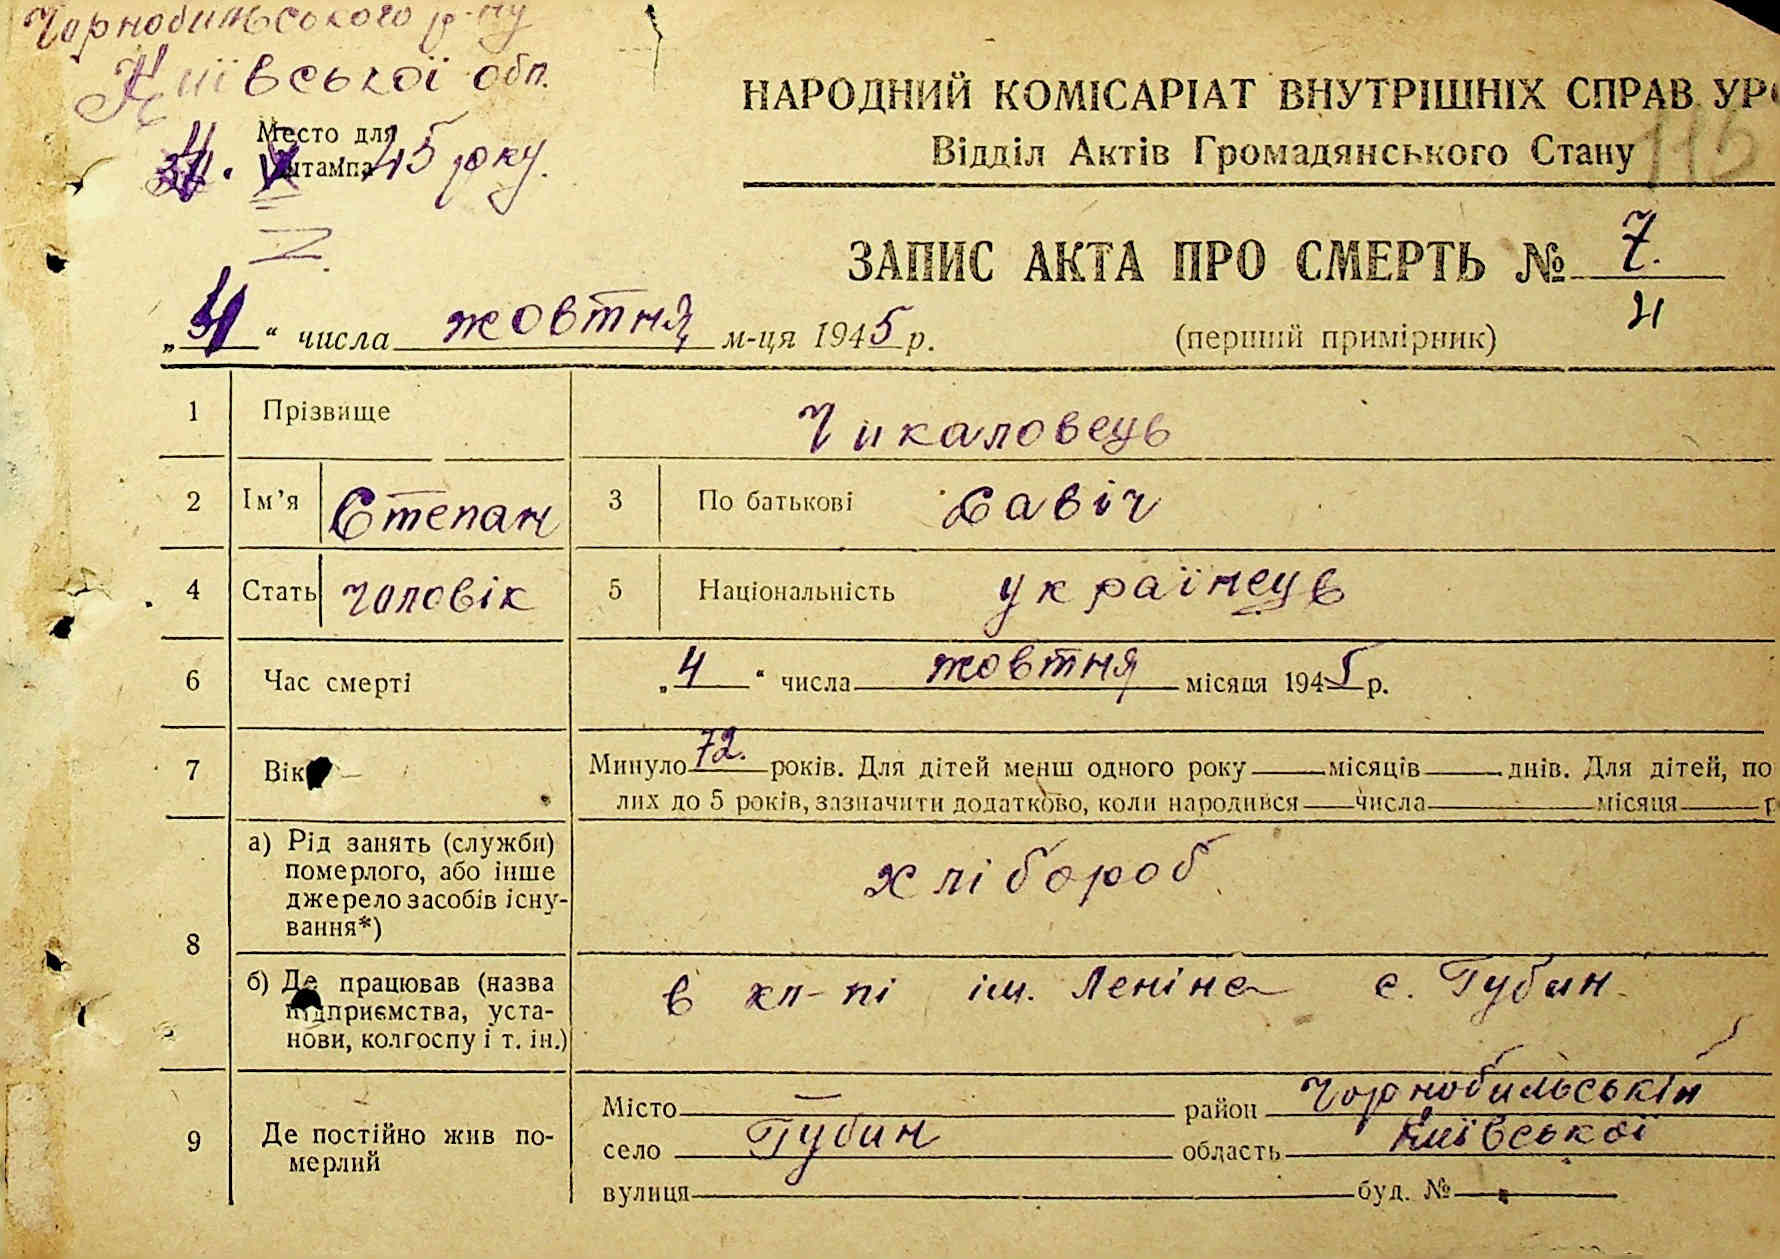 Чорнобильського р-ну
Київської обл.
Место для
штампа
4. X 45 року.
115
НАРОДНИЙ КОМІСАРІАТ ВНУТРІШНІХ СПРАВ УР
Відділ Актів Громадянського Стану
ЗАПИС АКТА ПРО СМЕРТЬ № 7.
„4“ числа жовтня м-ця 1945 р.
(перший примірник)
1 Прізвище Чикаловець
2 Ім’я Степан 3 По батькові Савіч
4 Стать чоловік 5 Національність українець
6 Час смерті „4“ числа жовтня місяця 1945 р.
7 Вік Минуло 72. років. Для дітей менш одного року — місяців — днів. Для дітей, по
лих до 5 років, зазначити додатково, коли народився — числа — місяця — р
8 а) Рід занять (служби)
померлого, або інше
джерело засобів існу-
вання*)
хлібороб
б) Де працював (назва
підприємства, уста-
нови, колгоспу і т. ін.)
в кл-пі ім. Леніна с. Губин
9 Де постійно жив по-
мерлий
Місто — район Чорнобильській
село Губин область Київської
вулиця буд. №